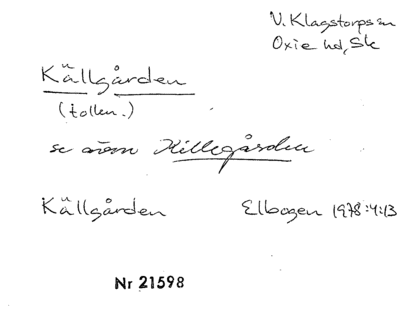 V. Klagstorps sn
Oxie hd, Sk
Källgården
(tolkn.)
se även Killegården
Källgården Elbogen 1978:4:13
Nr 21598